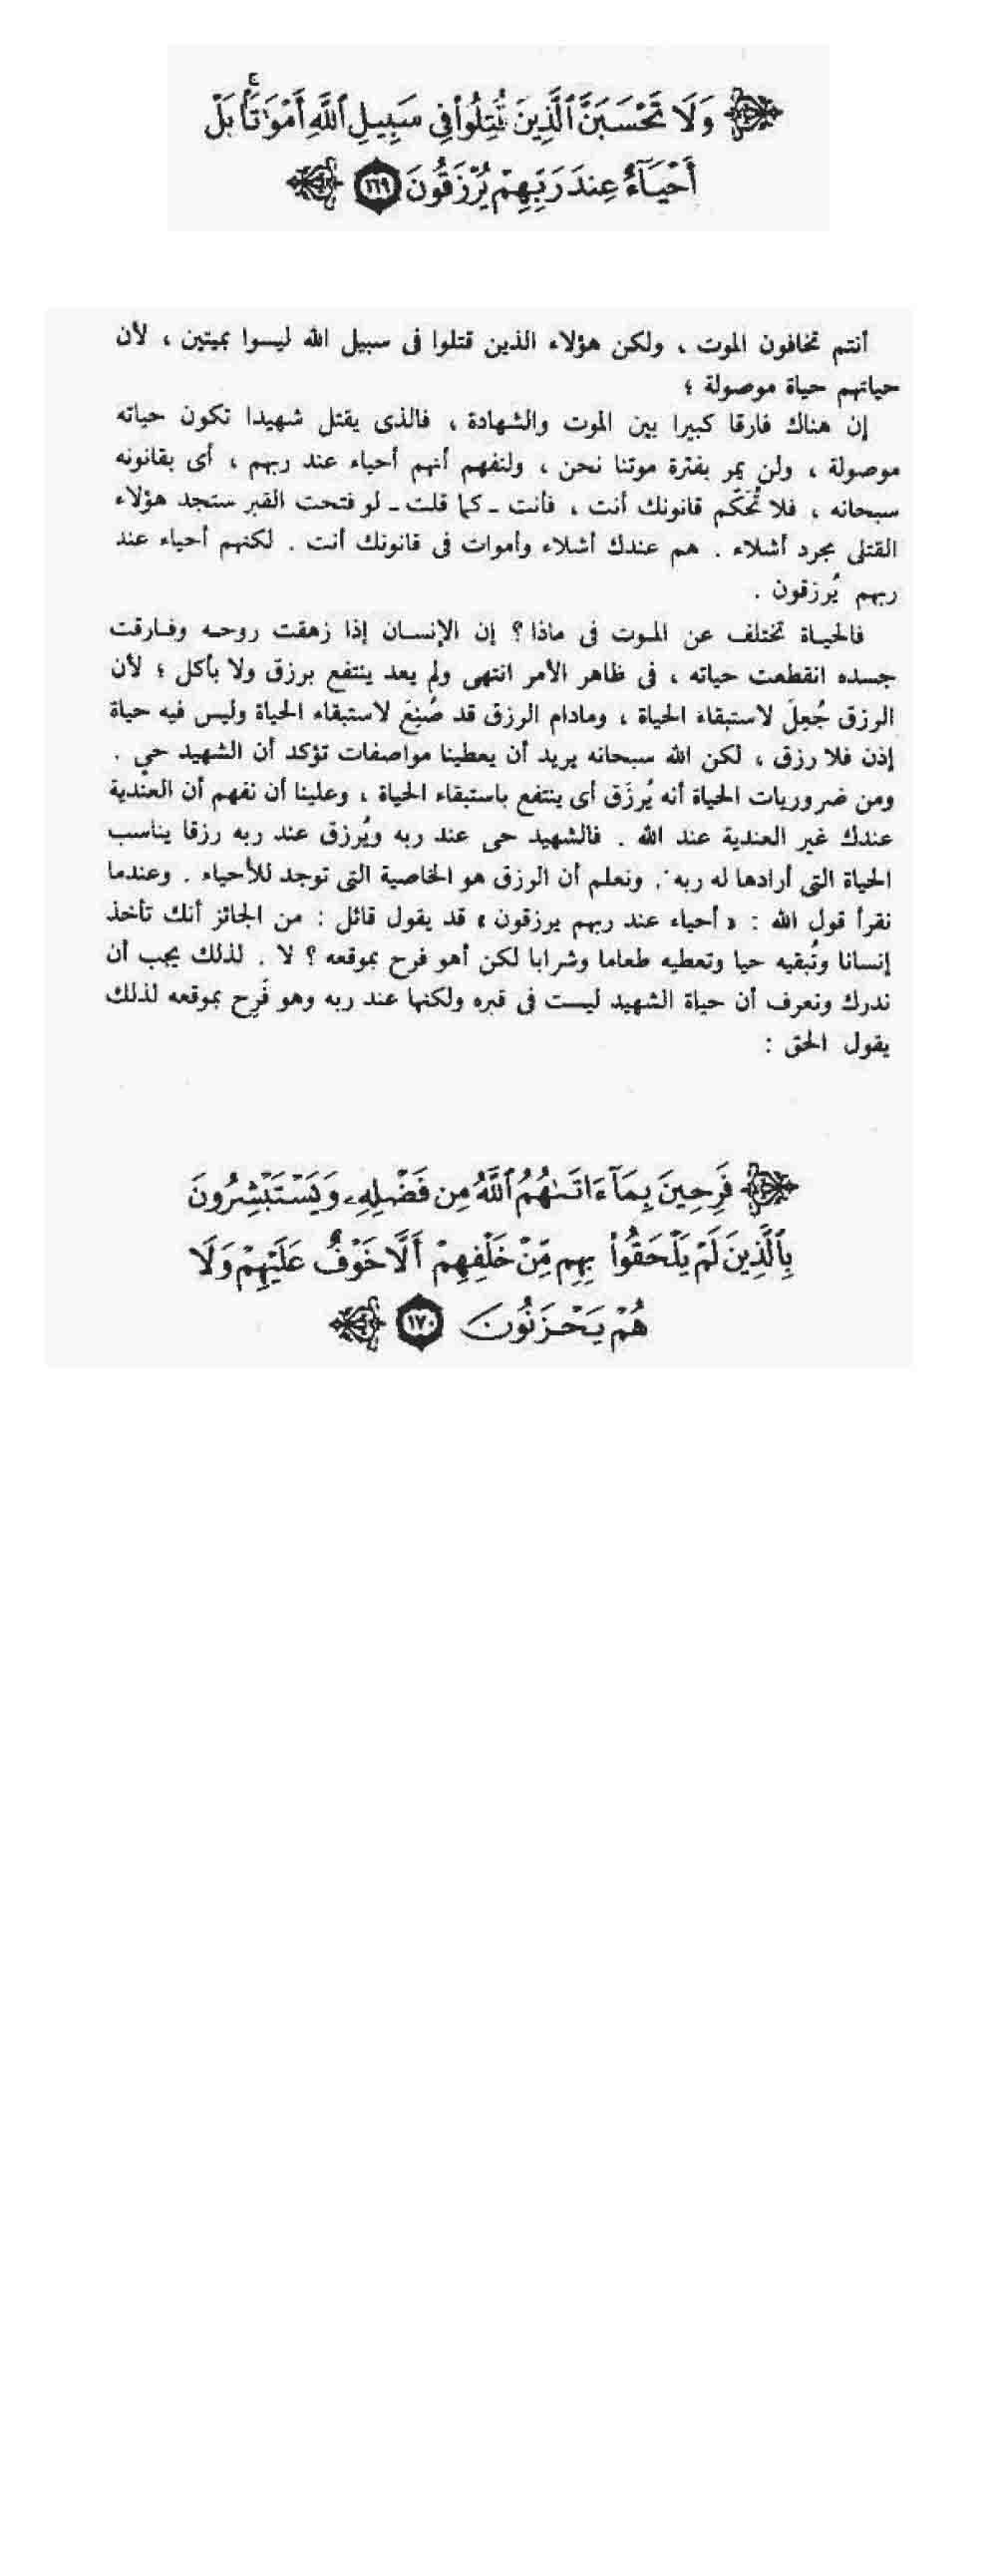 وَلَا تَحْسَبَنَّ ٱلَّذِينَ قُتِلُوا۟ فِى سَبِيلِ ٱللَّهِ أَمْوَٰتًۢا بَلْ
أَحْيَآءٌ عِندَ رَبِّهِمْ يُرْزَقُونَ ١٦٩
أنتم تخافون الموت ، ولكن هؤلاء الذين قتلوا فى سبيل الله ليسوا بميتين ، لأن
حياتهم حياة موصولة ؛
إن هناك فارقا كبيرا بين الموت والشهادة ، فالذى يقتل شهيدا تكون حياته
موصولة ، ولن يمر بفترة موتنا نحن ، ولنفهم أنهم أحياء عند ربهم ، أى بقانونه
سبحانه ، فلا تُحَكِّم قانونك أنت ، فأنت - كما قلت - لو فتحت القبر ستجد هؤلاء
القتلى مجرد أشلاء . هم عندك أشلاء وأموات فى قانونك أنت . لكنهم أحياء عند
ربهم يُرزقون .
فالحياة تختلف عن الموت فى ماذا ؟ إن الإنسان إذا زهقت روحه وفارقت
جسده انقطعت حياته ، فى ظاهر الأمر انتهى ولم يعد ينتفع برزق ولا بأكل ؛ لأن
الرزق جُعِلَ لاستبقاء الحياة ، ومادام الرزق قد صُنِعَ لاستبقاء الحياة وليس فيه حياة
إذن فلا رزق ، لكن الله سبحانه يريد أن يعطينا مواصفات تؤكد أن الشهيد حي .
ومن ضروريات الحياة أنه يُرزَق أى ينتفع باستبقاء الحياة ، وعلينا أن نفهم أن العندية
عندك غير العندية عند الله . فالشهيد حى عند ربه ويُرزق عند ربه رزقا يناسب
الحياة التى أرادها له ربه . ونعلم أن الرزق هو الخاصية التى توجد للأحياء . وعندما
نقرأ قول الله : « أحياء عند ربهم يرزقون » قد يقول قائل : من الجائز أنك تأخذ
إنسانا وتُبقيه حيا وتعطيه طعاما وشرابا لكن أهو فرح بموقعه ؟ لا . لذلك يجب أن
ندرك ونعرف أن حياة الشهيد ليست فى قبره ولكنها عند ربه وهو فَرِح بموقعه لذلك
يقول الحق :
فَرِحِينَ بِمَآ ءَاتَىٰهُمُ ٱللَّهُ مِن فَضْلِهِۦ وَيَسْتَبْشِرُونَ
بِٱلَّذِينَ لَمْ يَلْحَقُوا۟ بِهِم مِّنْ خَلْفِهِمْ أَلَّا خَوْفٌ عَلَيْهِمْ وَلَا
هُمْ يَحْزَنُونَ ١٧٠